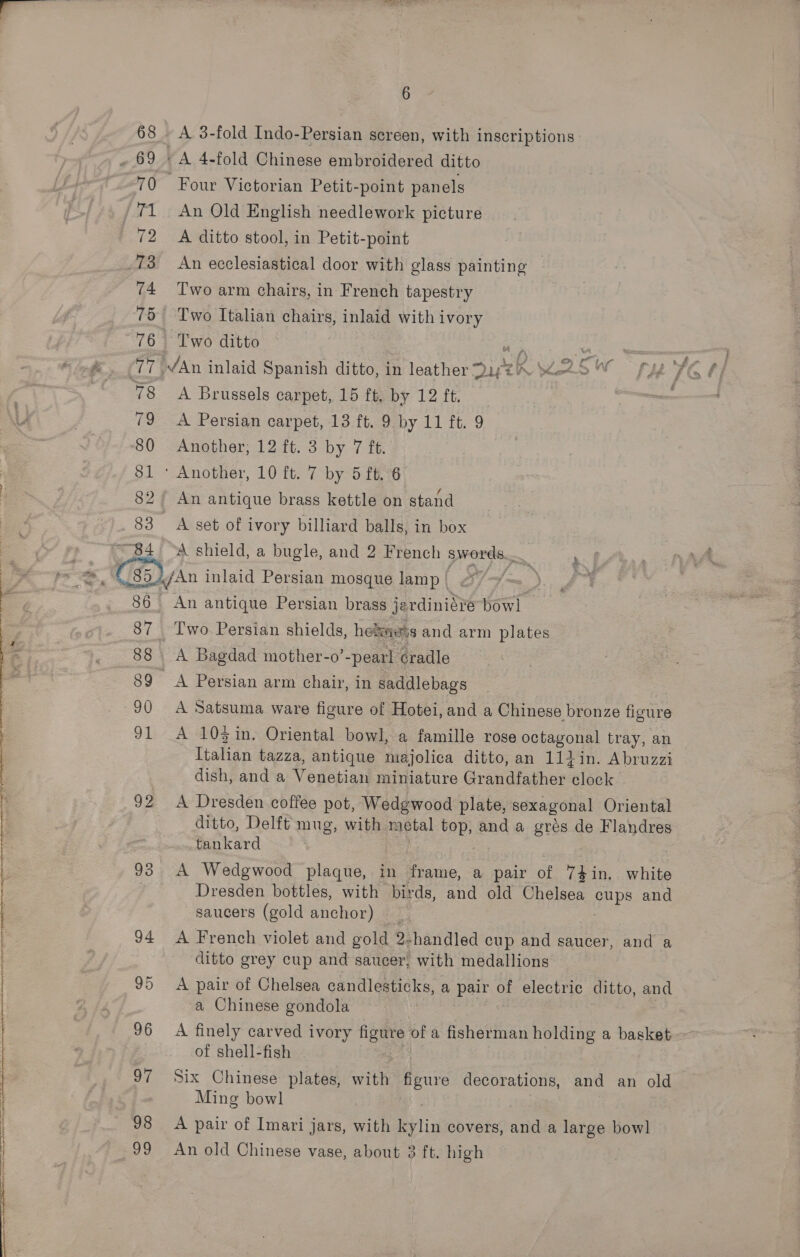 6
68 A 3-fold Indo-Persian screen, with inscriptions
69 A 4-fold Chinese embroidered ditto
70 Four Victorian Petit-point panels
71 An Old English needlework picture
72 A ditto stool, in Petit-point
73 An ecclesiastical door with glass painting
74 Two arm chairs, in French tapestry
75 Two Italian chairs, inlaid with ivory
76 Two ditto
77 An inlaid Spanish ditto, in leather
78 A Brussels carpet, 15 ft. by 12 ft.
79 A Persian carpet, 13 ft. 9 by 11 ft. 9
80 Another, 12 ft. 3 by 7 ft.
81 Another, 10 ft. 7 by 5 ft. 6
82 An antique brass kettle on stand
83 A set of ivory billiard balls, in box
84 A shield, a bugle, and 2 French swords
85 An inlaid Persian mosque lamp
86 An antique Persian brass jardinière bowl
87 Two Persian shields, helmets and arm plates
88 A Bagdad mother-o'-pearl cradle
89 A Persian arm chair, in saddlebags
90 A Satsuma ware figure of Hotei, and a Chinese bronze figure
91 A 10½ in. Oriental bowl, a famille rose octagonal tray, an
Italian tazza, antique majolica ditto, an 11½ in. Abruzzi
dish, and a Venetian miniature Grandfather clock
92 A Dresden coffee pot, Wedgwood plate, sexagonal Oriental
ditto, Delft mug, with metal top, and a grès de Flandres
tankard
93 A Wedgwood plaque, in frame, a pair of 7½ in. white
Dresden bottles, with birds, and old Chelsea cups and
saucers (gold anchor)
94 A French violet and gold 2-handled cup and saucer, and a
ditto grey cup and saucer, with medallions
95 A pair of Chelsea candlesticks, a pair of electric ditto, and
a Chinese gondola
96 A finely carved ivory figure of a fisherman holding a basket
of shell-fish
97 Six Chinese plates, with figure decorations, and an old
Ming bowl
98 A pair of Imari jars, with kylin covers, and a large bowl
99 An old Chinese vase, about 3 ft. high